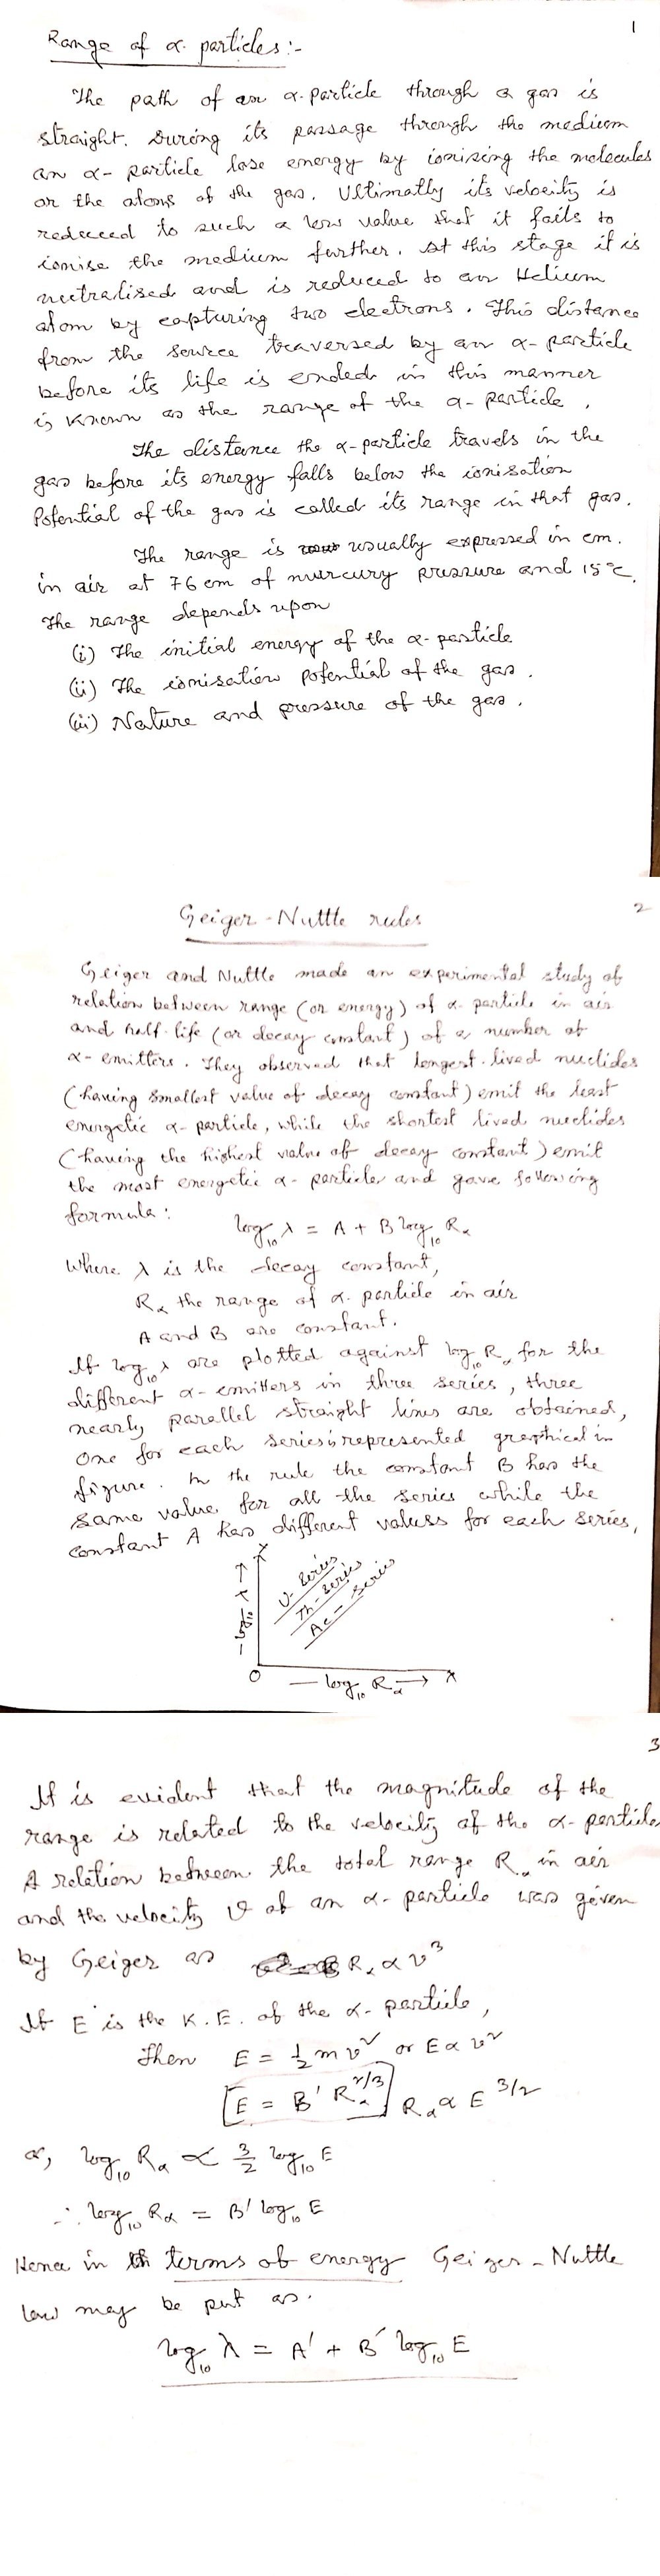 1
Range of α- particles :-
The path of an α-particle through a gas is
straight. During its passage through the medium
an α- particle lose energy by ionising the molecules
or the atoms of the gas. Ultimatly its velocity is
reduced to such a low value that it fails to
ionise the medium further. At this stage it is
neutralised and is reduced to an Helium
atom by capturing two electrons. This distance
from the source traversed by an α- particle
before its life is ended in this manner
is known as the range of the α- particle.
The distance the α-particle travels in the
gas before its energy falls below the ionisation
Potential of the gas is called its range in that gas.
The range is usually expressed in cm.
in air at 76 cm of murcury pressure and 15°c.
The range depends upon
(i) The initial energy of the α- particle
(ii) The ionisation potential of the gas.
(iii) Nature and pressure of the gas.
2
Geiger - Nuttle rules
Geiger and Nuttle made an experimental study of
relation between range (or energy) of α- particle in air
and half-life (or decay constant) of a number of
α- emitters. They observed that longest-lived nuclides
(having smallest value of decay constant) emit the least
energetic α- particle, while the shortest lived nuclides
(having the highest value of decay constant) emit
the most energetic α- particles and gave following
formula:
log₁₀ λ = A + B log₁₀ Rα
Where λ is the decay constant,
Rα the range of α- particle in air
A and B are constant.
If log₁₀ λ are plotted against log₁₀ Rα for the
different α- emitters in three series, three
nearly parallel straight lines are obtained,
one for each series is represented graphical in
figure. In the rule the constant B has the
same value for all the series while the
constant A has different values for each series,
Y
U- Series
Th- Series
Ac - Series
— log₁₀ λ →
O
— log₁₀ Rα → X
3
It is evident that the magnitude of the
range is related to the velocity of the α- particle
A relation between the total range Rα in air
and the velocity v of an α- particle was given
by Geiger as Rα ∝ v³
If E is the K.E. of the α- particle,
Then E = ½ m v² or E ∝ v²
[E = B' Rα^2/3] Rα ∝ E^3/2
or, log₁₀ Rα ∝ 3/2 log₁₀ E
∴ log₁₀ Rα = B' log₁₀ E
Hence in terms of energy Geiger - Nuttle
law may be put as.
log₁₀ λ = A' + B' log₁₀ E